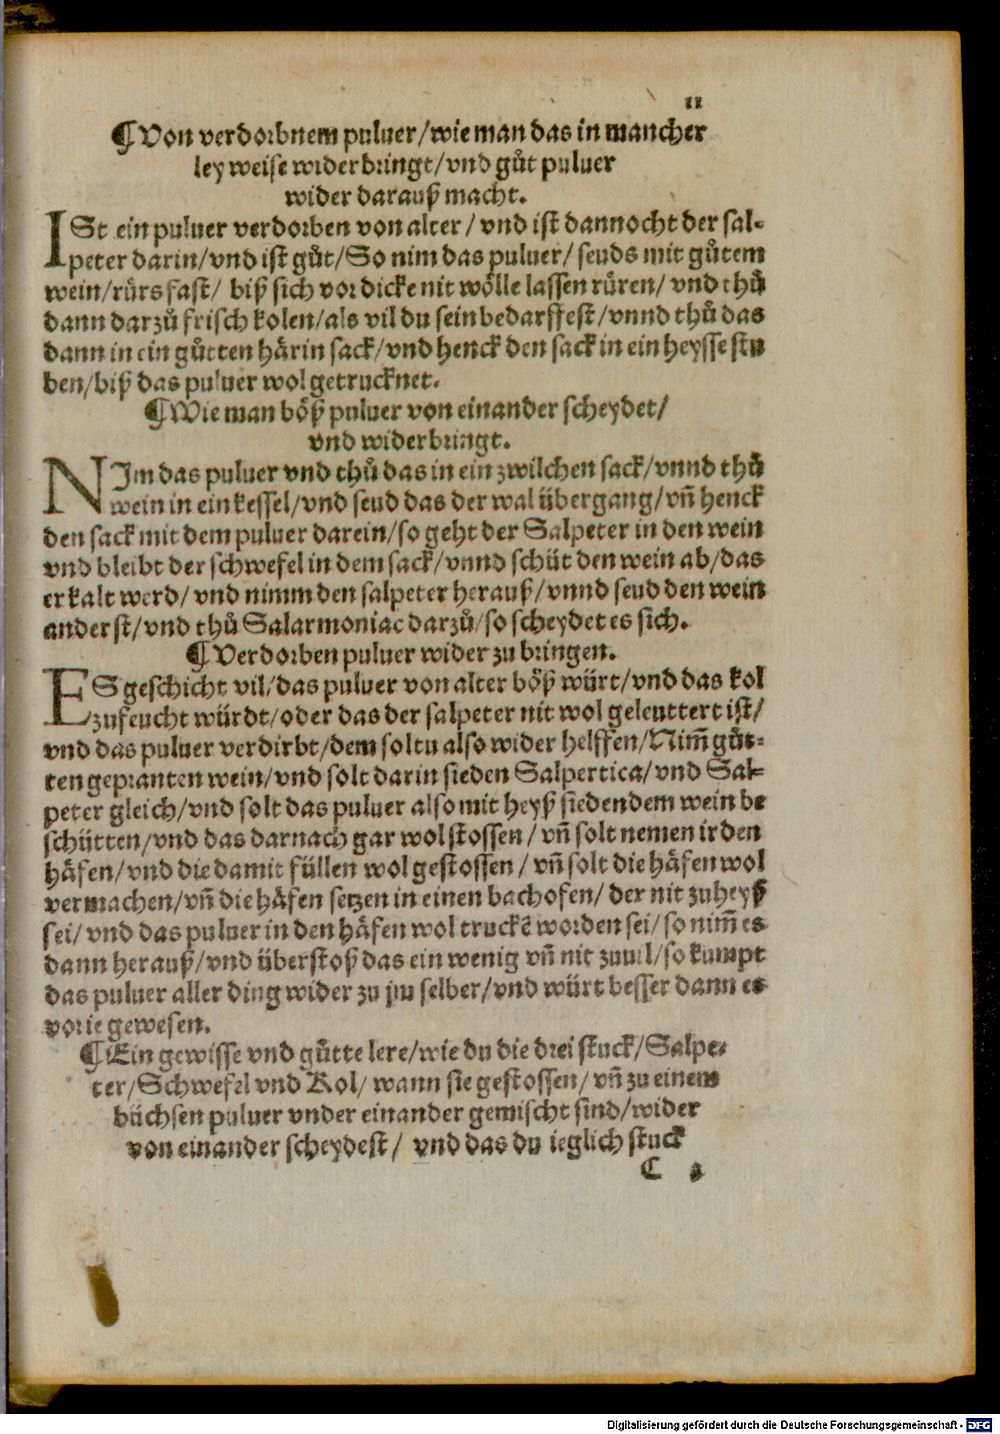 11
¶Von verdorbnem puluer/wie man das in mancher
ley weise widerbringt/vnd gůt puluer
wider darauß macht.
ISt ein puluer verdorben von alter/vnd ist dannocht der sal-
peter darin/vnd ist gůt/So nim das puluer/seuds mit gůtem
wein/rürs fast/ biß sich vor dicke nit wölle lassen rüren/ vnd thů
dann darzů frisch kolen/als vil du sein bedarffest/vnnd thů das
dann in ein gůtten härin sack/vnd henck den sack in ein heysse stu
ben/biß das puluer wol getrucknet.
¶Wie man böß puluer von einander scheydet/
vnd widerbringt.
NJm das puluer vnd thů das in ein zwilchen sack/vnnd thů
wein in ein kessel/vnd seud das der wal übergang/vñ henck
den sack mit dem puluer darein/so geht der Salpeter in den wein
vnd bleibt der schwefel in dem sack/vnnd schüt den wein ab/das
er kalt werd/ vnd nimm den salpeter herauß/vnnd seud den wein
anderst/vnd thů Salarmoniac darzů/so scheydet es sich.
¶Verdorben puluer wider zu bringen.
ES geschicht vil/das puluer von alter böß würt/vnd das kol
zufeucht würdt/oder das der salpeter nit wol geleuttert ist/
vnd das puluer verdirbt/dem soltu also wider helffen/Nim̃ gůt-
ten gepranten wein/vnd solt darin sieden Salpertica/vnd Sal-
peter gleich/vnd solt das puluer also mit heyß siedendem wein be
schütten/vnd das darnach gar wol stossen/ vñ solt nemen irden
häfen/vnd die damit füllen wol gestossen/ vñ solt die häfen wol
vermachen/vñ die häfen setzen in einen bachofen/ der nit zuheyß
sei/ vnd das puluer in den häfen wol truckẽ worden sei/ so nim̃ es
dann herauß/vnd überstoß das ein wenig vñ nit zuuil/so kumpt
das puluer aller ding wider zu jm selber/vnd würt besser dann es
vor ie gewesen.
¶Ein gewisse vnd gůtte lere/wie du die drei stuck/Salpe-
ter/Schwefel vnd Kol/ wann sie gestossen/ vñ zu einem
büchsen puluer vnder einander gemischt sind/wider
von einander scheydest/ vnd das du ieglich stuck
C 3
Digitalisierung gefördert durch die Deutsche Forschungsgemeinschaft - DFG